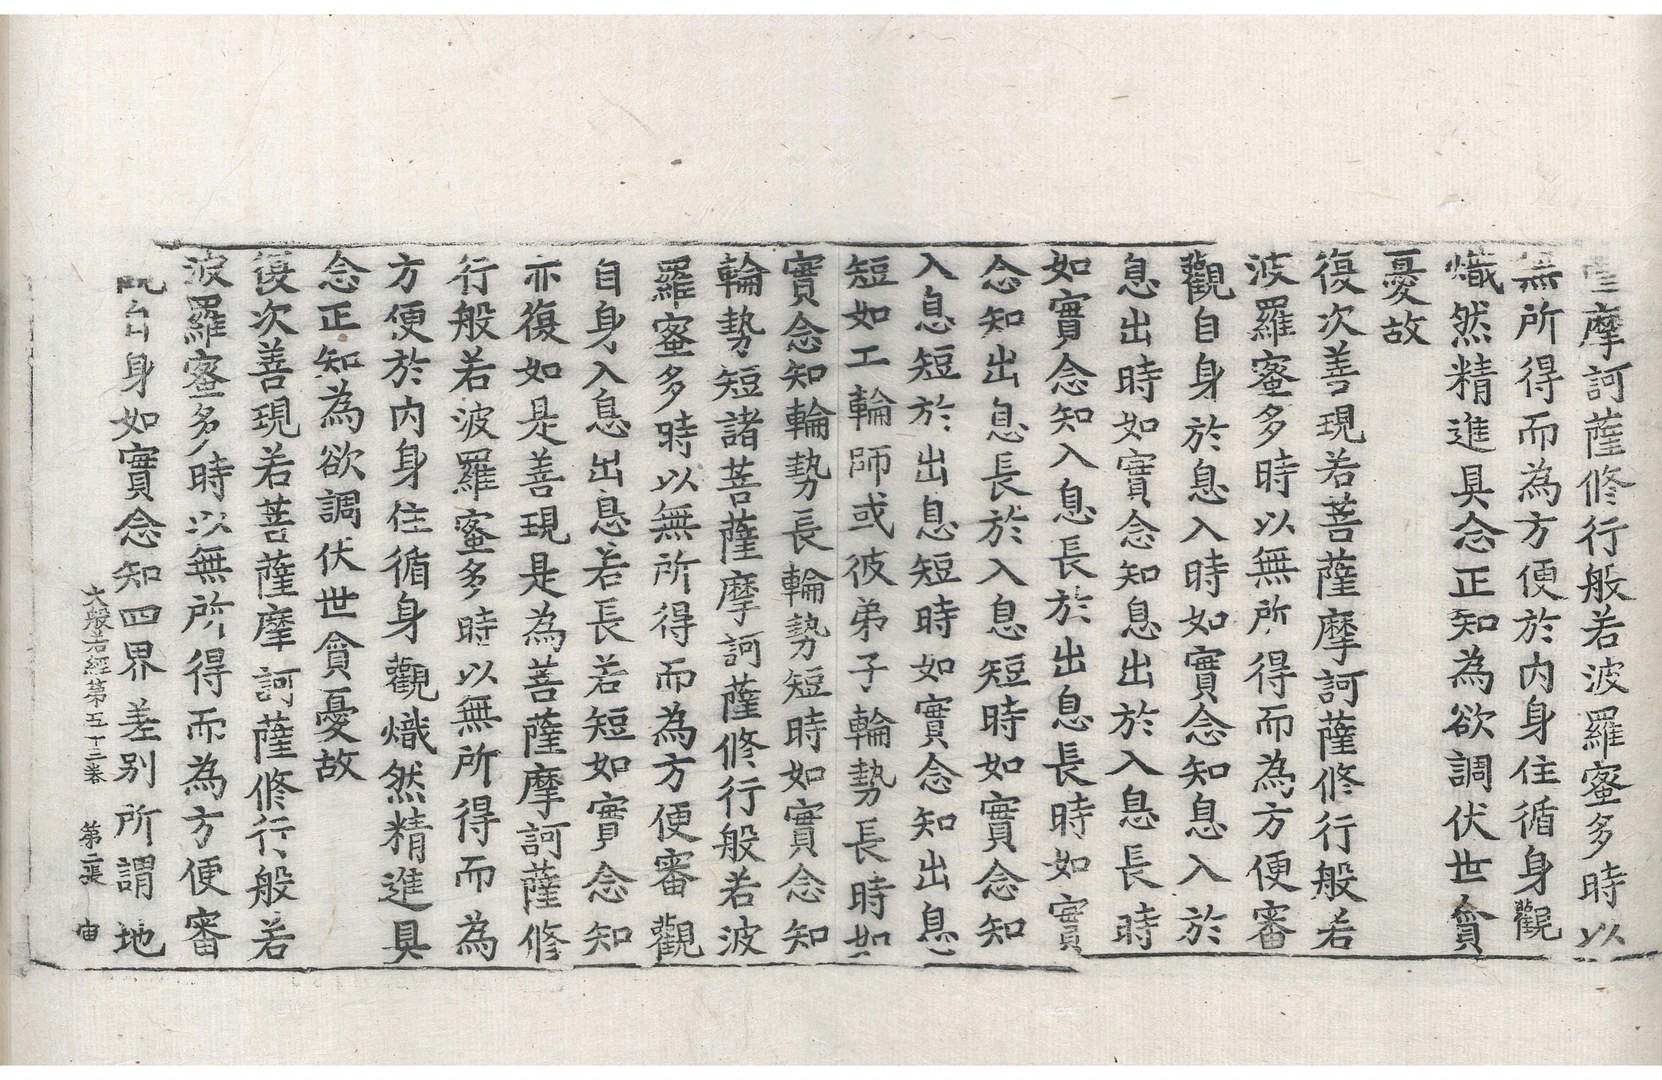 摩訶薩修行般若波羅蜜多時以
無所得而為方便於内身住循身觀
熾然精進具念正知為欲調伏世貪
憂故
復次善現若菩薩摩訶薩修行般若
波羅蜜多時以無所得而為方便審
觀自身於息入時如實念知息入於
息出時如實念知息出於入息長時
如實念知入息長於出息長時如實
念知出息長於入息短時如實念知
入息短於出息短時如實念知出息
短如工輪師或彼弟子輪勢長時如
實念知輪勢長輪勢短時如實念知
輪勢短諸菩薩摩訶薩修行般若波
羅蜜多時以無所得而為方便審觀
自身入息出息若長若短如實念知
亦復如是善現是為菩薩摩訶薩修
行般若波羅蜜多時以無所得而為
方便於内身住循身觀熾然精進具
念正知為欲調伏世貪憂故
復次善現若菩薩摩訶薩修行般若
波羅蜜多時以無所得而為方便審
身如實念知四界差別所謂地
大般若經第五十三卷 第二張 宙